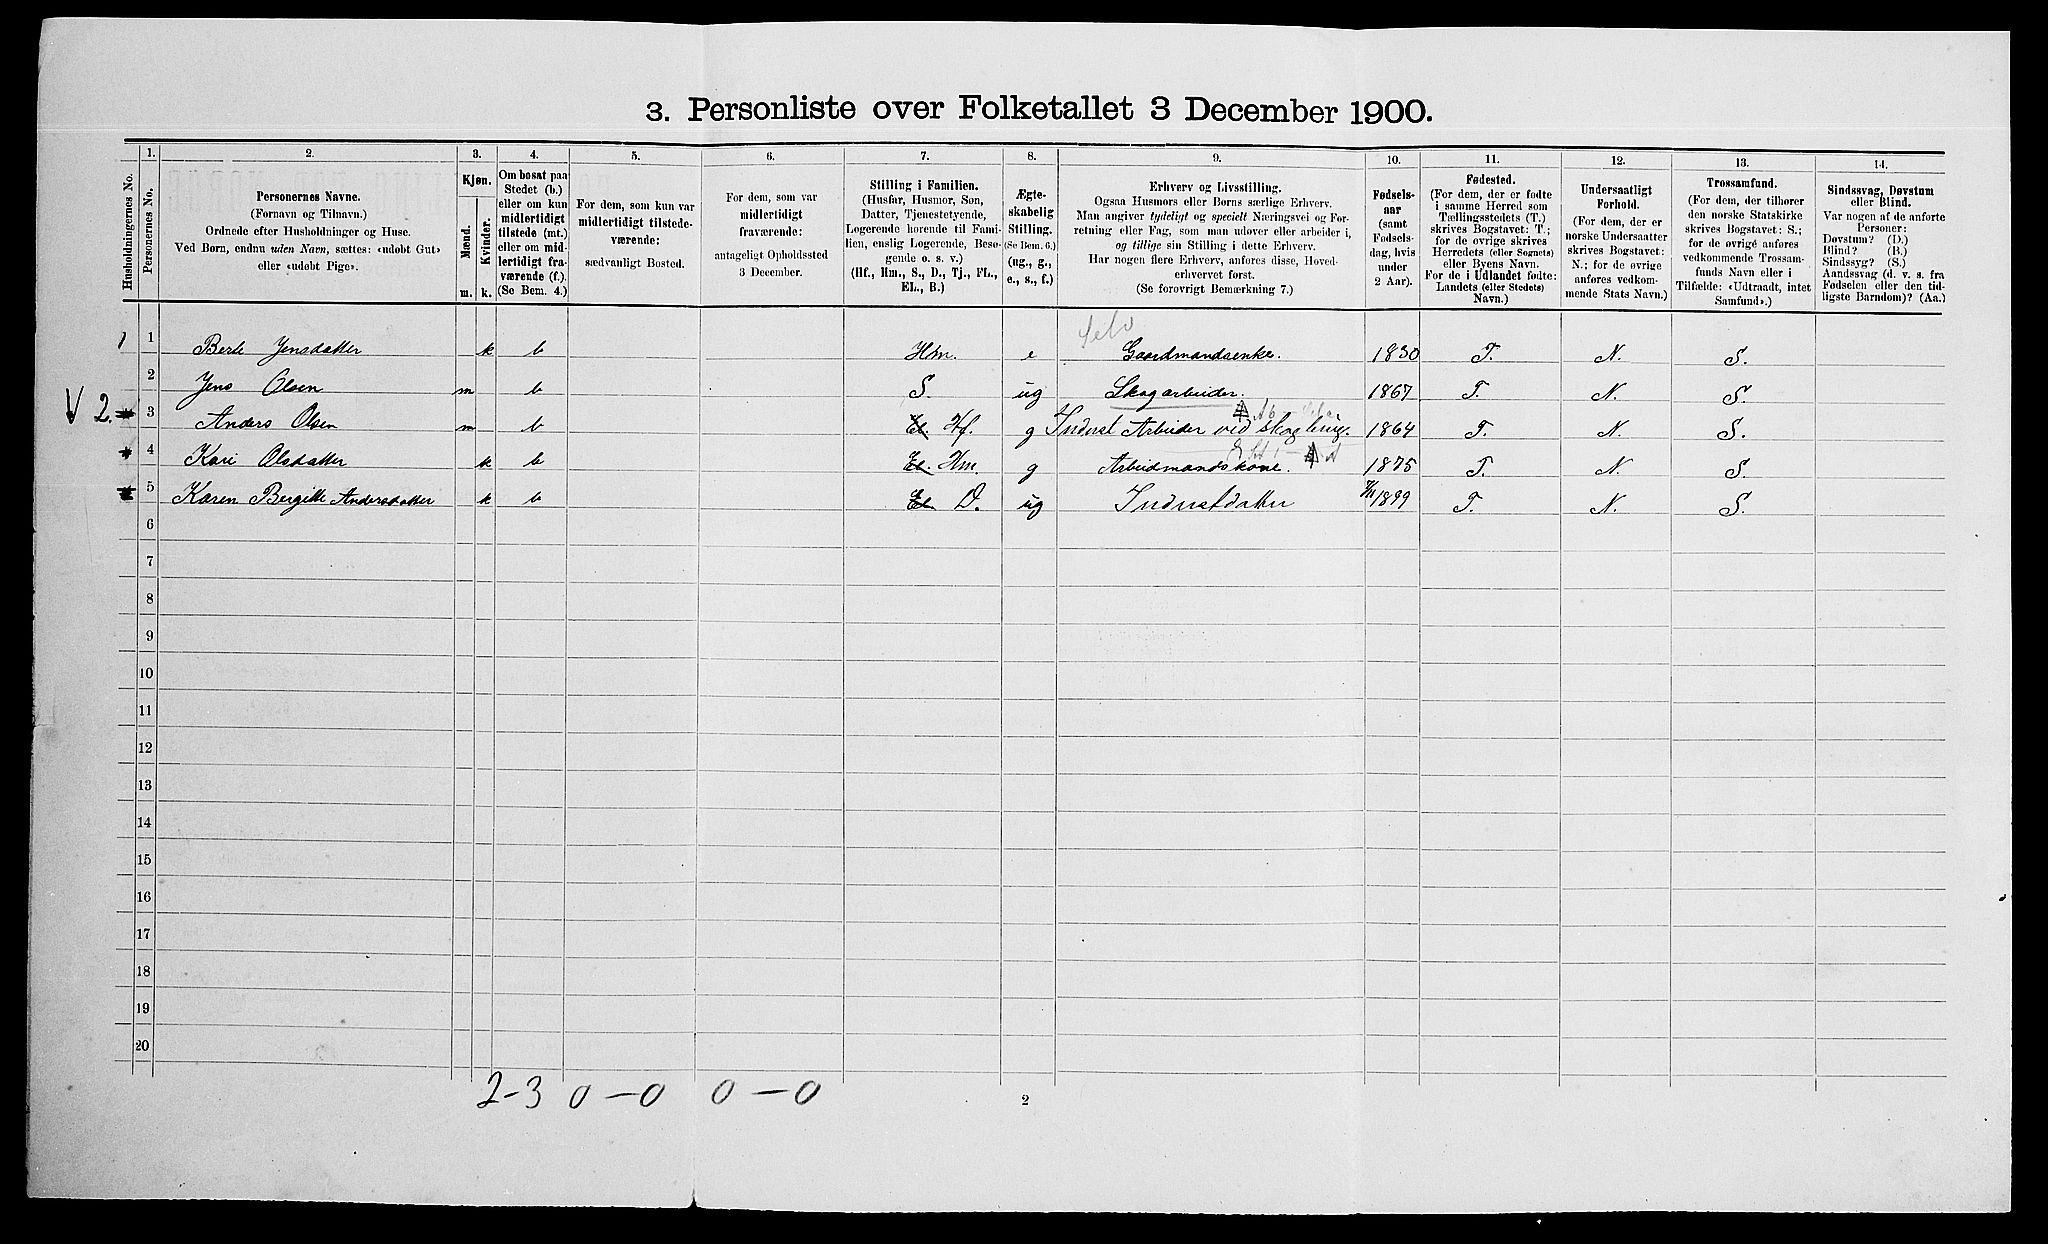 3. Personliste over Folketallet 3 December 1900.
1. 2. 3. 4. 5. 6. 7. 8. 9. 10. 11. 12. 13. 14.
Husholdningernes No.
Personernes No.
Personernes Navne.
(Fornavn og Tilnavn.)
Ordnede efter Husholdninger og Huse.
Ved Børn, endnu uden Navn, sættes: «udøbt Gut»
eller «udøbt Pige».
Kjøn.
Mænd.
Kvinder.
m. k.
Om bosat paa
Stedet (b.)
eller om kun
midlertidigt
tilstede (mt.)
eller om mid-
lertidigt fra-
værende (f.).
(Se Bem. 4.)
For dem, som kun var
midlertidigt tilstede-
værende:
sædvanligt Bosted.
For dem, som var
midlertidigt
fraværende:
antageligt Opholdssted
3 December.
Stilling i Familien.
(Husfar, Husmor, Søn,
Datter, Tjenestetyende,
Logerende hørende til Fami-
lien, enslig Logerende, Besø-
gende o. s. v.)
(Hf., Hm., S., D., Tj., FL.,
EL., B.)
Ægte-
skabelig
Stilling.
(Se Bem. 6.)
(ug., g.,
e., s., f.)
Erhverv og Livsstilling.
Ogsaa Husmors eller Børns særlige Erhverv.
Man angiver tydeligt og specielt Næringsvei og For-
retning eller Fag, som man udøver eller arbeider i,
og tillige sin Stilling i dette Erhverv.
Har nogen flere Erhverv, anføres disse, Hoved-
erhvervet først.
(Se forøvrigt Bemærkning 7.)
Fødsels-
aar
(samt
Fødsels-
dag, hvis
under
2 Aar).
Fødested.
(For dem, der er fødte
i samme Herred som
Tællingsstedets (T.)
skrives Bogstavet: T.;
for de øvrige skrives
Herredets (eller Sognets)
eller Byens Navn.
For de i Udlandet fødte:
Landets (eller Stedets)
Navn.)
Undersaatligt
Forhold.
(For dem, der er
norske Undersaatter
skrives Bogstavet:
N.; for de øvrige
anføres vedkom-
mende Stats Navn.)
Trossamfund.
(For dem, der tilhører
den norske Statskirke
skrives Bogstavet: S.;
for de øvrige anføres
vedkommende Trossam-
funds Navn eller i
Tilfælde: «Udtraadt, intet
Samfund».)
Sindssvag, Døvstum
eller Blind.
Var nogen af de anførte
Personer:
Døvstum? (D.)
Blind? (B.)
Sindssyg? (S.)
Aandssvag (d. v. s. fra
Fødselen eller den tid-
ligste Barndom)? (Aa.)
Selv
1 1 Berte Jensdatter k b Hm. e Gaardmandsenke. 1830 T. N. S.
2 Jens Olsen m b S. ug Skogarbeider. 1867 T. N. S.
2. 3 Anders Olsen m b El. Hf. g Inderst Arbeider ved skogbrug. 1864 T. N. S.
4 Kari Olsdatter k b El. Hm. g Arbeidmandskone. 1875 T. N. S.
5 Karen Bergitte Andersdatter k b El D. ug Inderstdatter 1899 T. N. S.
6
7
8
9
10
11
12
13
14
15
16
17
18
19
20
2-3 0-0 0-0
2